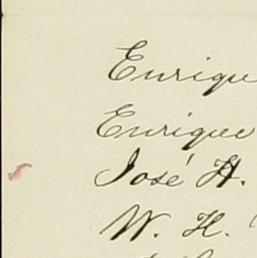 Enrique
Enrique
José H.
W. H.